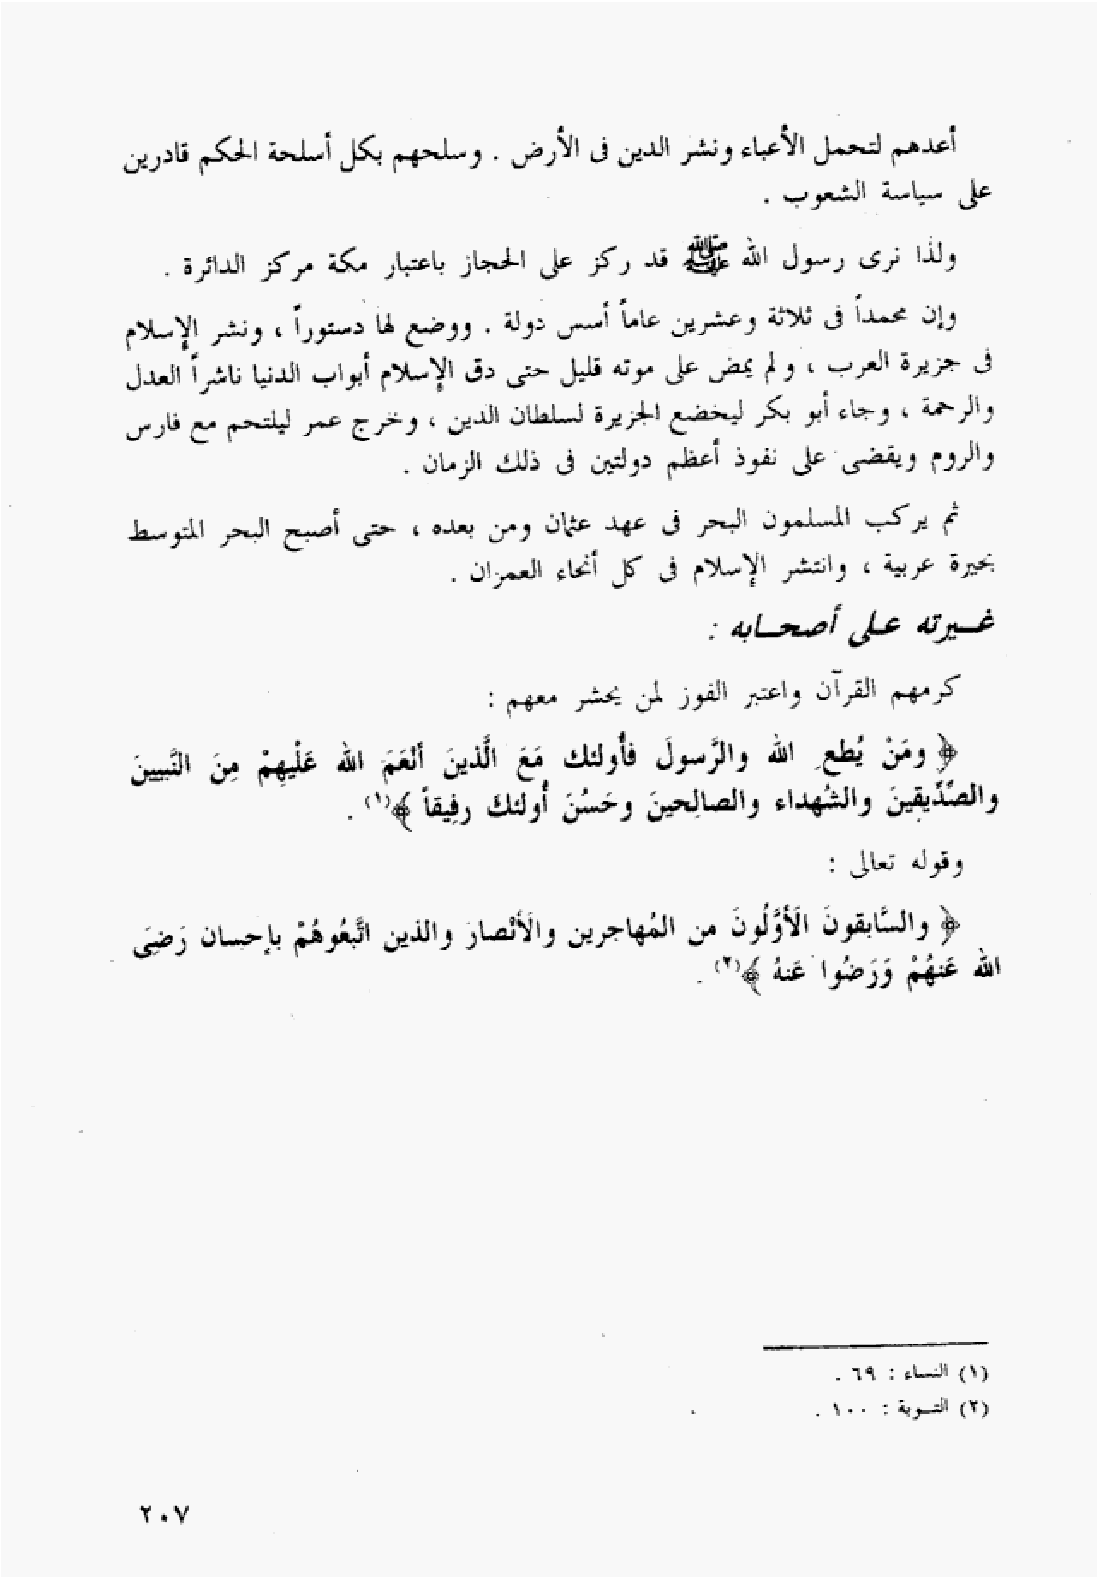 أعدهم لتحمل الأعباء ونشر الدين فى الأرض . وسلحهم بكل أسلحة الحكم قادرين
على سياسة الشعوب .
ولذا نرى رسول الله ﷺ قد ركز على الحجاز باعتبار مكة مركز الدائرة .
وإن محمداً فى ثلاثة وعشرين عاماً أسس دولة . ووضع لها دستوراً ، ونشر الإسلام
فى جزيرة العرب ، ولم يمض على موته قليل حتى دق الإسلام أبواب الدنيا ناشراً العدل
والرحمة ، وجاء أبو بكر ليخضع الجزيرة لسلطان الدين ، وخرج عمر ليلتحم مع فارس
والروم ويقضى على نفوذ أعظم دولتين فى ذلك الزمان .
ثم يركب المسلمون البحر فى عهد عثمان ومن بعده ، حتى أصبح البحر المتوسط
بحيرة عربية ، وانتشر الإسلام فى كل أنحاء العمران .
غـيرته عـلى أصحـابه :
كرمهم القرآن واعتبر الفوز لمن يحشر معهم :
﴿ ومَنْ يُطع الله والرَّسولَ فأُولئك مَعَ الَّذينَ أنْعَمَ الله عَلَيهِمْ مِنَ النَّبيينَ
والصِّدِّيقينَ والشُهداء والصالِحينَ وحَسُنَ أُولئكَ رفِيقاً ﴾(١) .
وقوله تعالى :
﴿ والسَّابقونَ الَأوَّلُونَ من المُهاجرين والَأنْصارَ والذين اتَّبعُوهُمْ بإحسان رَضِىَ
الله عَنهُمْ وَرَضُوا عَنهُ ﴾(٢) .
(١) النساء : ٦٩ .
(٢) التـوبة : ١٠٠ .
٢٠٧